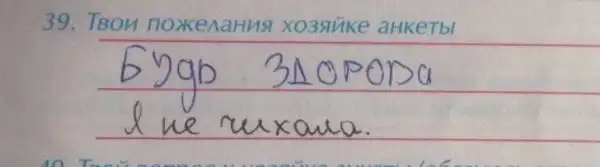 39. Твои пожелания хозяйке анкеты
Будь ЗДОРОВа
Я не чихала.